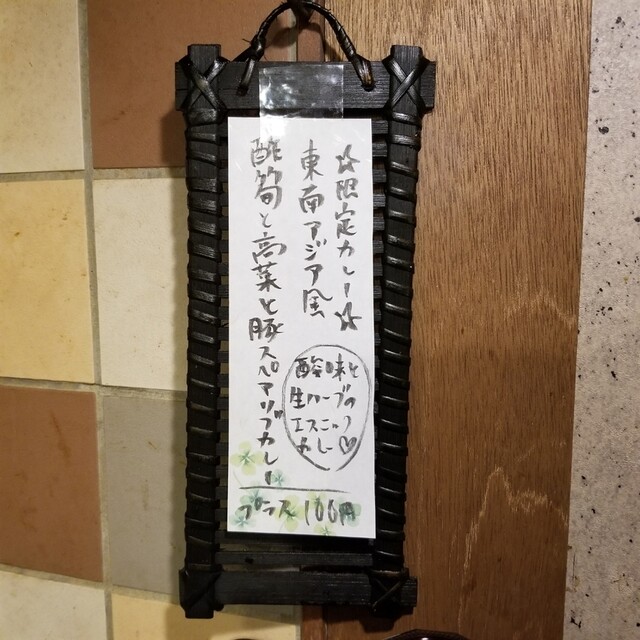 ☆限定カレー☆
東南アジア風
酸筍と高菜と豚スペアリブカレー
酸味と
生ハーブの
エスニック
カレー♡
プラス100円